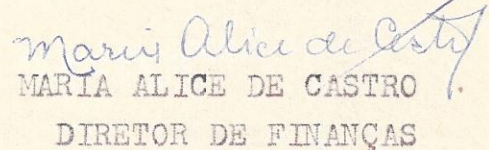 Maria Alice de Castro
MARIA ALICE DE CASTRO .
DIRETOR DE FINANÇAS